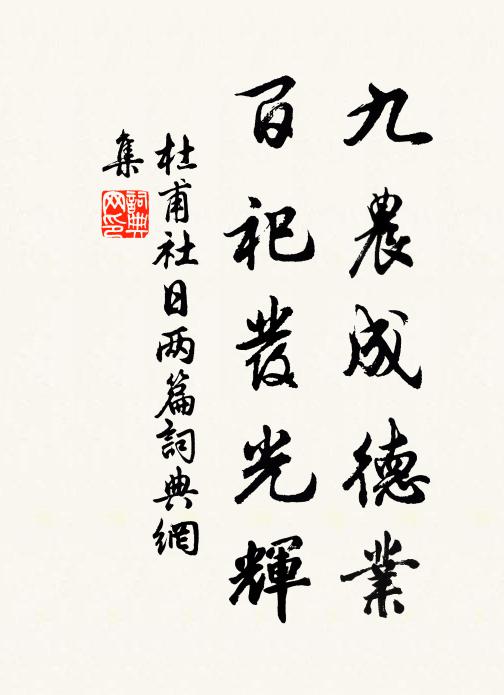 九農成德業
百祀發光輝
杜甫社日两篇詞典網
集
詞典
网印